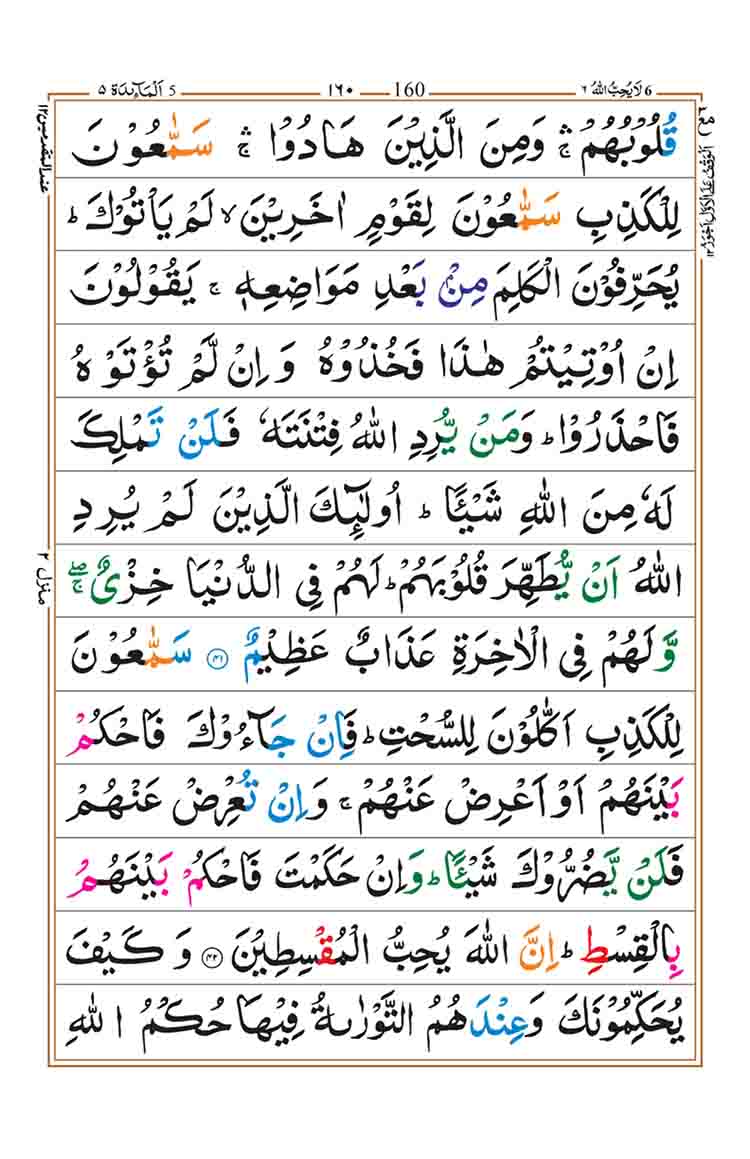 5 اَلْمَآئِدَة ۵
۱۶۰ — 160
6 لَا يُحِبُّ اللهُ ۶
قُلُوْبُهُمْ ۛۚ وَمِنَ الَّذِيْنَ هَادُوْا ۛۚ سَمّٰعُوْنَ
لِلْكَذِبِ سَمّٰعُوْنَ لِقَوْمٍ اٰخَرِيْنَ ۙ لَمْ يَاْتُوْكَ ؕ
يُحَرِّفُوْنَ الْكَلِمَ مِنْۢ بَعْدِ مَوَاضِعِهٖ ۚ يَقُوْلُوْنَ
اِنْ اُوْتِيْتُمْ هٰذَا فَخُذُوْهُ وَاِنْ لَّمْ تُؤْتَوْهُ
فَاحْذَرُوْا ؕ وَمَنْ يُّرِدِ اللهُ فِتْنَتَهٗ فَلَنْ تَمْلِكَ
لَهٗ مِنَ اللهِ شَيْـًٔا ؕ اُولٰٓئِكَ الَّذِيْنَ لَمْ يُرِدِ
اللهُ اَنْ يُّطَهِّرَ قُلُوْبَهُمْ ؕ لَهُمْ فِي الدُّنْيَا خِزْيٌ ۖۚ
وَّلَهُمْ فِي الْاٰخِرَةِ عَذَابٌ عَظِيْمٌ ﴿۴۱﴾ سَمّٰعُوْنَ
لِلْكَذِبِ اَكّٰلُوْنَ لِلسُّحْتِ ؕ فَاِنْ جَآءُوْكَ فَاحْكُمْ
بَيْنَهُمْ اَوْ اَعْرِضْ عَنْهُمْ ۚ وَاِنْ تُعْرِضْ عَنْهُمْ
فَلَنْ يَّضُرُّوْكَ شَيْـًٔا ؕ وَاِنْ حَكَمْتَ فَاحْكُمْ بَيْنَهُمْ
بِالْقِسْطِ ؕ اِنَّ اللهَ يُحِبُّ الْمُقْسِطِيْنَ ﴿۴۲﴾ وَكَيْفَ
يُحَكِّمُوْنَكَ وَعِنْدَهُمُ التَّوْرٰىةُ فِيْهَا حُكْمُ اللهِ
عند المتقدمين ۱۲
منزل ۲